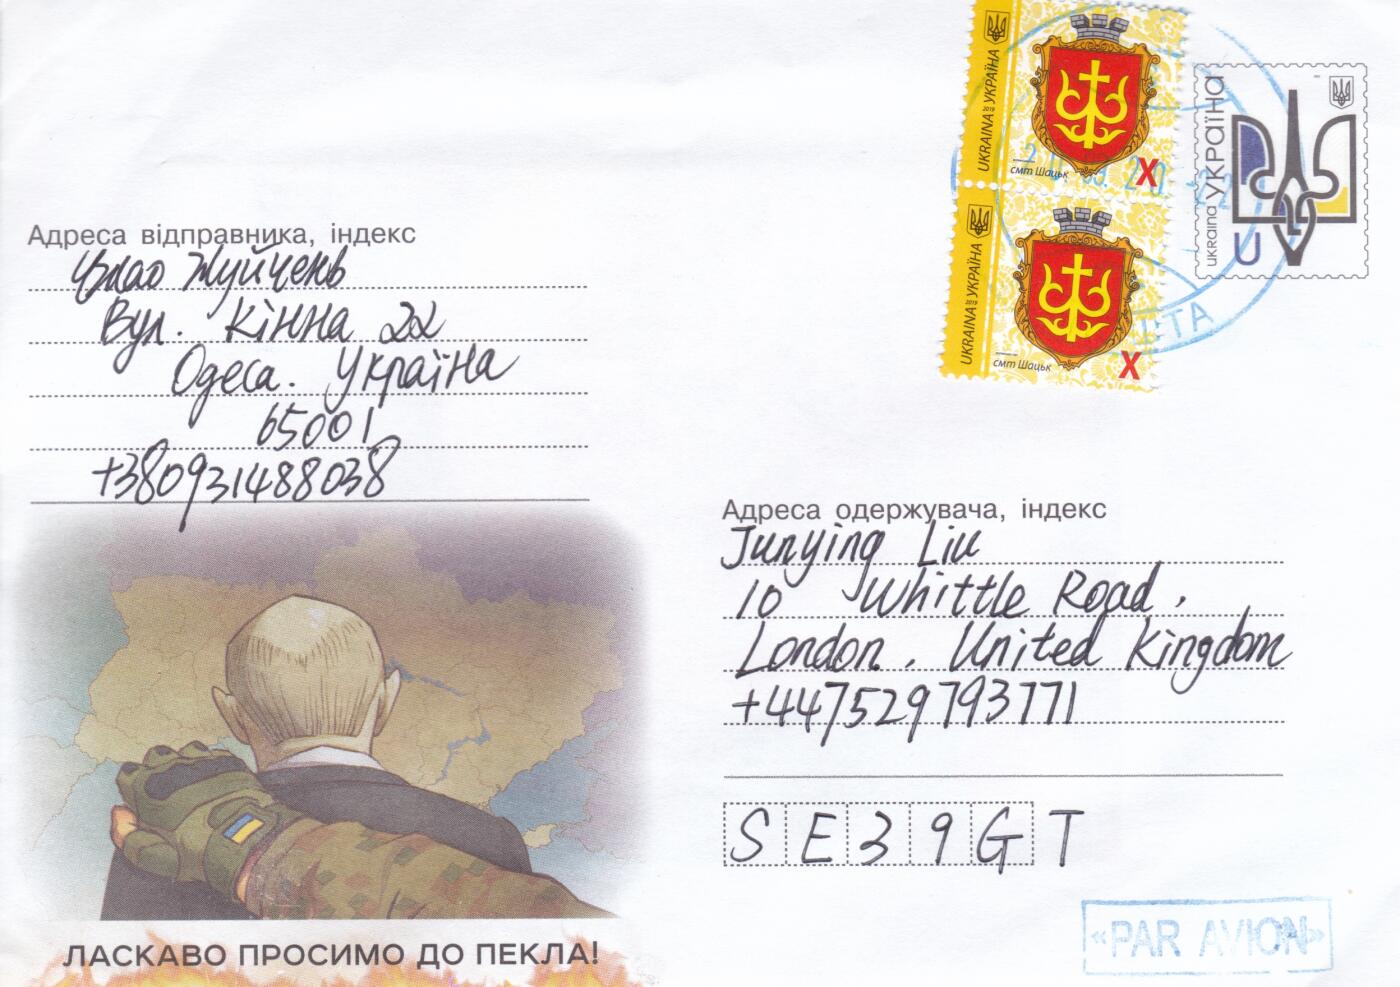 UKRAINA 2019 УКРАЇНА
смт Шацьк
X
UKRAINA 2019 УКРАЇНА
смт Шацьк
X
UKRAINA УКРАЇНА
U
Адреса відправника, індекс
Чжао Жуйчень
Вул. Кінна 22
Одеса. Україна
65001
+380931488038
Адреса одержувача, індекс
Junying Liu
10 Whittle Road,
London, United Kingdom
+447529793771
SE39GT
ЛАСКАВО ПРОСИМО ДО ПЕКЛА!
«PAR AVION»